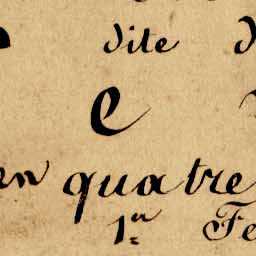 dite
e
en quatre
1er Fe